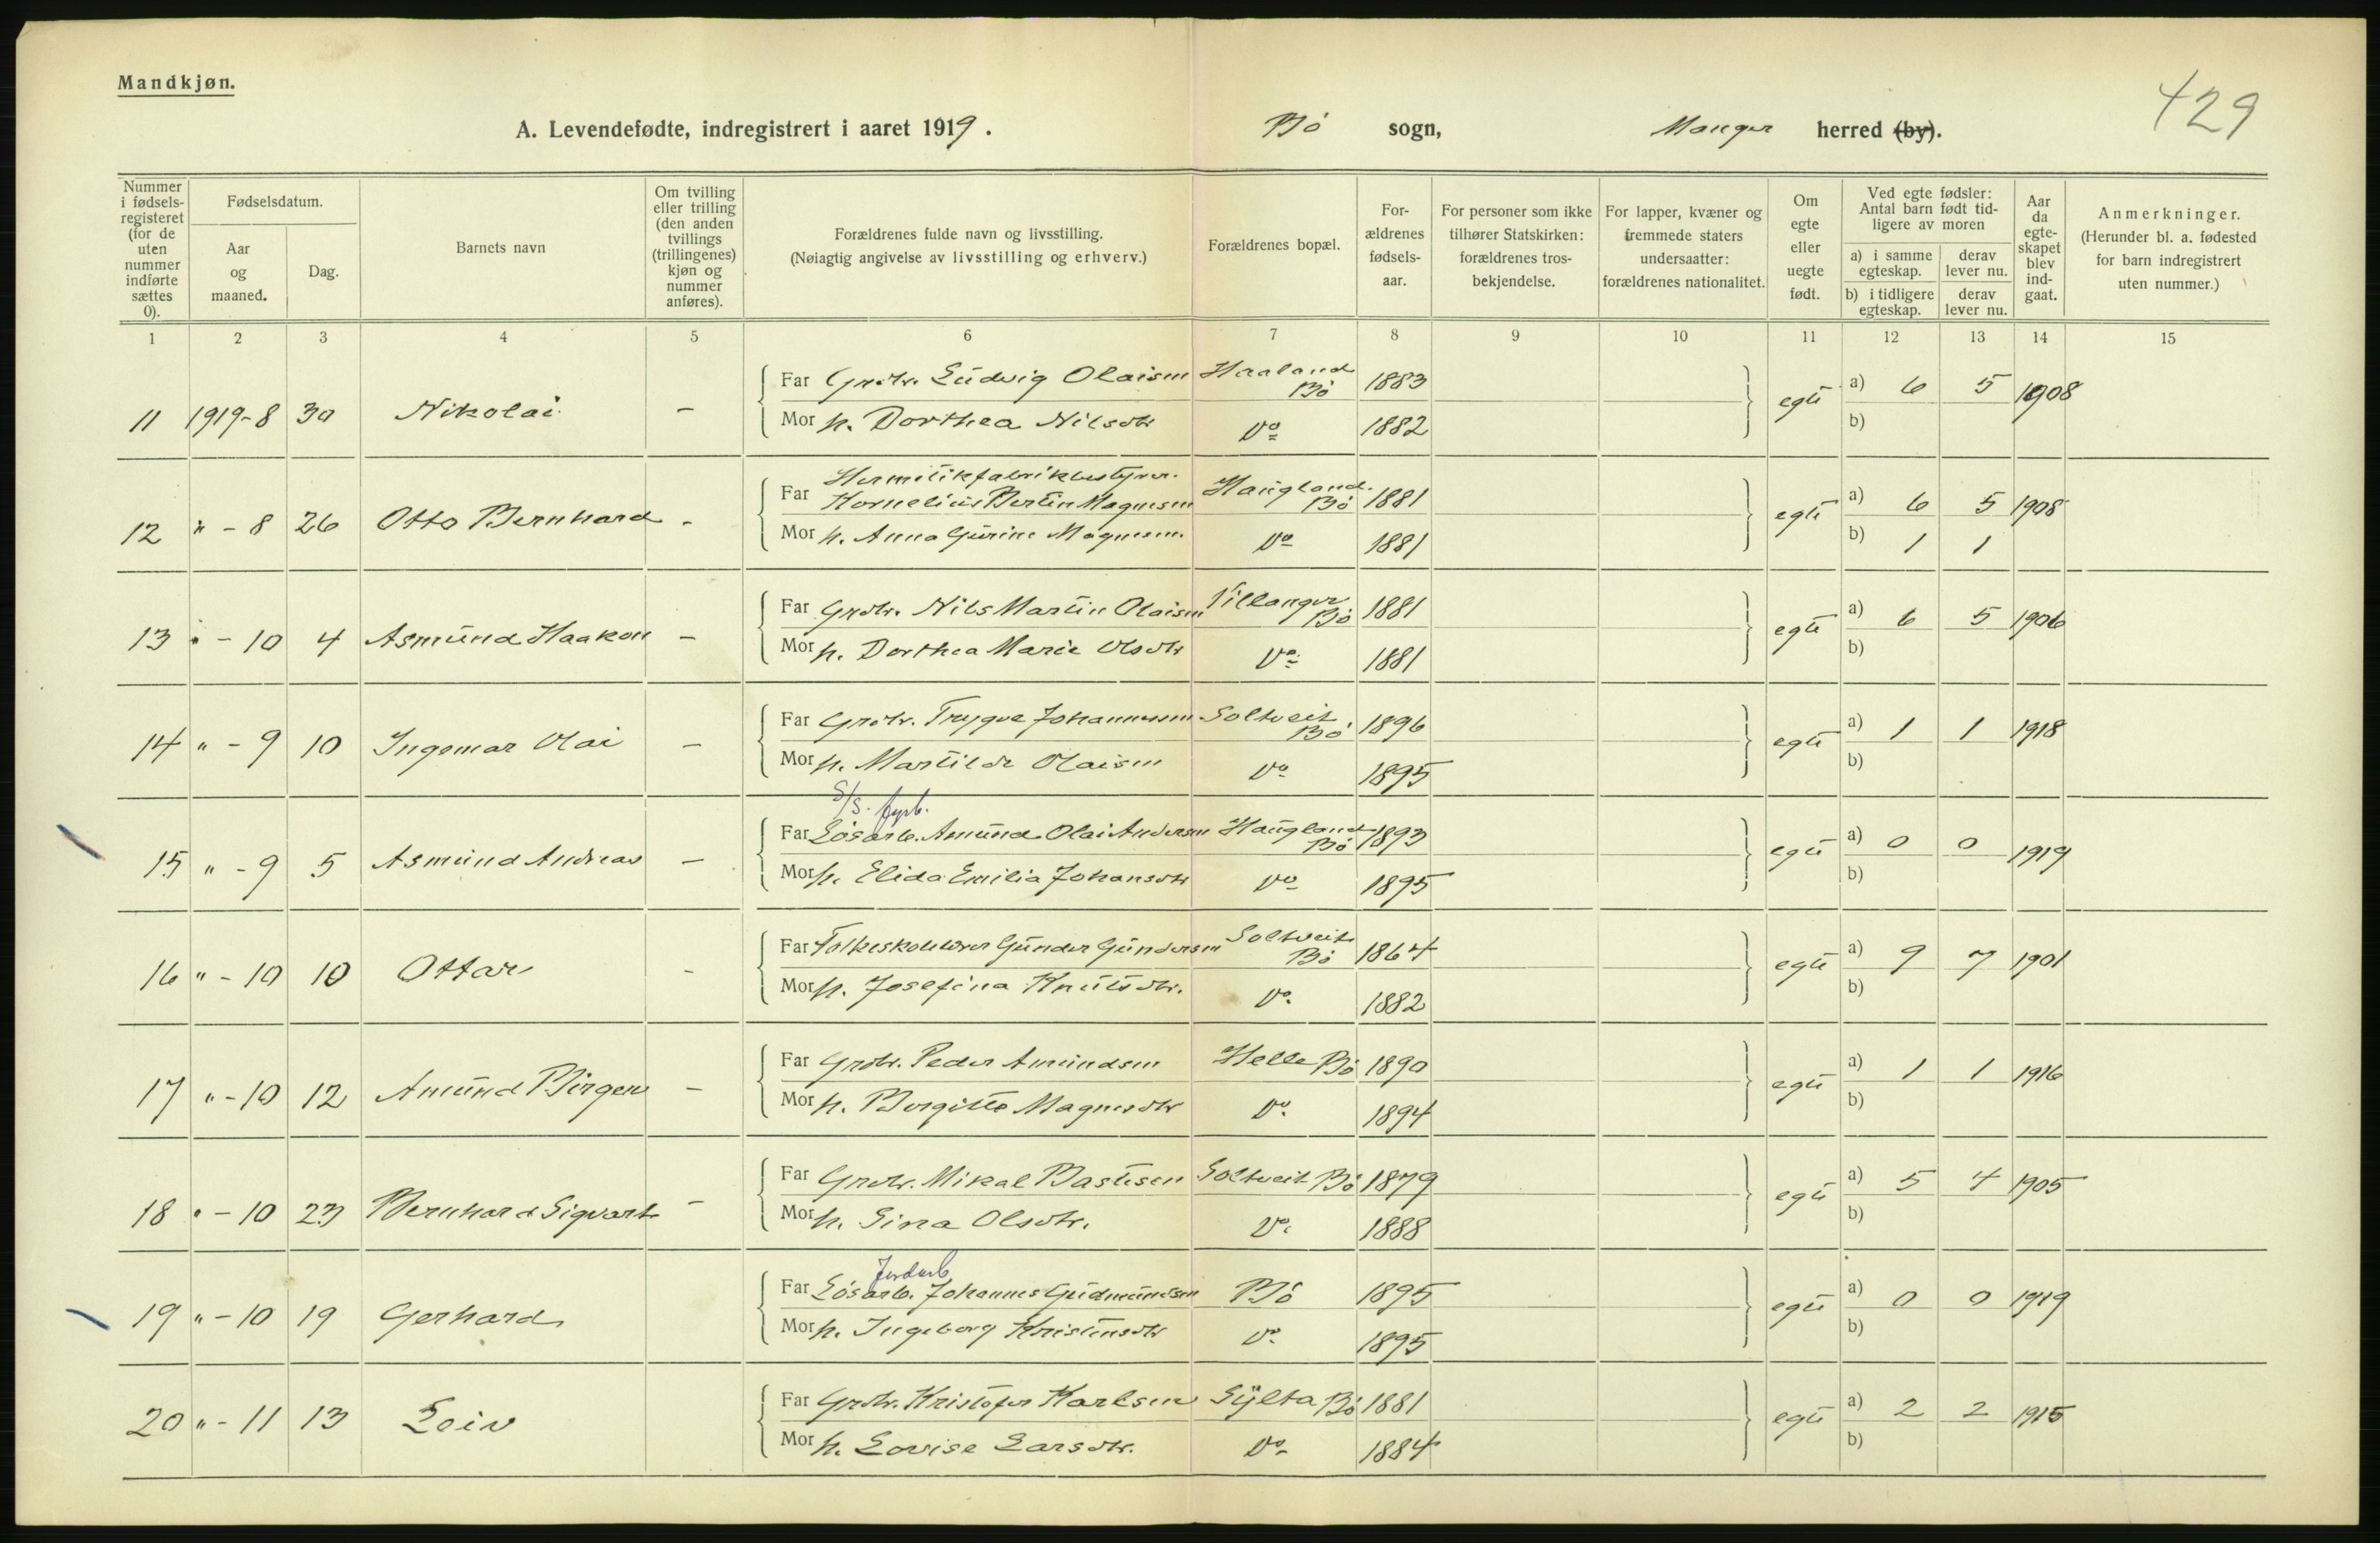 Mandkjøn.
429
A. Levendefødte, indregistrert i aaret 1919. Bö sogn, Manger herred (by).
Nummer i fødsels-registeret (for de uten nummer indførte sættes 0).
Fødselsdatum.
Aar og maaned.
Dag.
Barnets navn
Om tvilling eller trilling (den anden tvillings (trillingenes) kjøn og nummer anføres).
Forældrenes fulde navn og livsstilling.
(Nøiagtig angivelse av livsstilling og erhverv.)
Forældrenes bopæl.
For-ældrenes fødsels-aar.
For personer som ikke tilhører Statskirken: forældrenes tros-bekjendelse.
For lapper, kvæner og fremmede staters undersaatter: forældrenes nationalitet.
Om egte eller uegte født.
Ved egte fødsler: Antal barn født tid-ligere av moren
a) i samme egteskap.
derav lever nu.
b) i tidligere egteskap.
derav lever nu.
Aar da egte-skapet blev ind-gaat.
Anmerkninger.
(Herunder bl. a. fødested for barn indregistrert uten nummer.)
1 2 3 4 5 6 7 8 9 10 11 12 13 14 15
Far Grdbr. Ludvig Olaisen Haaland Bö 1883 a) 6 5 1908
11 1919-8 30 Nikolai – egte
Mor h. Dorthea Nilsdtr Do 1882 b)
Hermetikfabrikbestyrer.
Far Kornelius Bertin Magnesen Haugland. Bö 1881 a) 6 5 1908
12 " - 8 26 Otto Bernhard - egte
Mor h. Anna Gurine Magnesen. Do 1881 b) 1 1
Far Grdbr. Nils Martin Olaisen Villanger Bö 1881 a) 6 5 1906
13 " - 10 4 Asmund Haakon – egte
Mor h. Dorthea Marie Olsdtr Do 1881 b)
Far Grdbr. Trygve Johannessen Soltveit Bö 1896 a) 1 1 1918
14 " - 9 10 Ingemar Olai – egte
Mor h. Martilde Olaisen Do 1895 b)
S/S. fyrb.
Far Lösarb. Amund Olai Andersen Haugland Bö 1893 a) 0 0 1919
15 " - 9 5 Asmund Andreas – egte
Mor h. Elida Emilia Johansdtr Do 1895 b)
Far Folkeskolelærer Gunder Gundersen Soltveit Bö 1864 a) 9 7 1901
16 " - 10 10 Ottar - egte
Mor h. Josefina Knutsdtr. Do. 1882 b)
Far Grdbr. Peder Amundsen Helle Bö 1890 a) 1 1 1916
17 " - 10 12 Amund Birger – egte
Mor h. Borgitte Magnesdtr Do. 1894 b)
Far Grdbr. Mikal Bastesen Soltveit Bö 1879 a) 5 4 1905
18 " - 10 23 Bernhard Sigvart - egte
Mor h. Sina Olsdtr. Do. 1888 b)
Jordarb
Far Lösarb. Johannes Gudmundsen Bö 1895 a) 0 0 1919
19 " - 10 19 Gerhard egte
Mor h. Ingeborg Kristensdtr Do 1895 b)
Far Grdbr. Kristofer Karlsen Sylta Bö 1881 a) 2 2 1915
20 " - 11 13 Leiv egte
Mor h. Lovise Larsdtr. Do 1884 b)